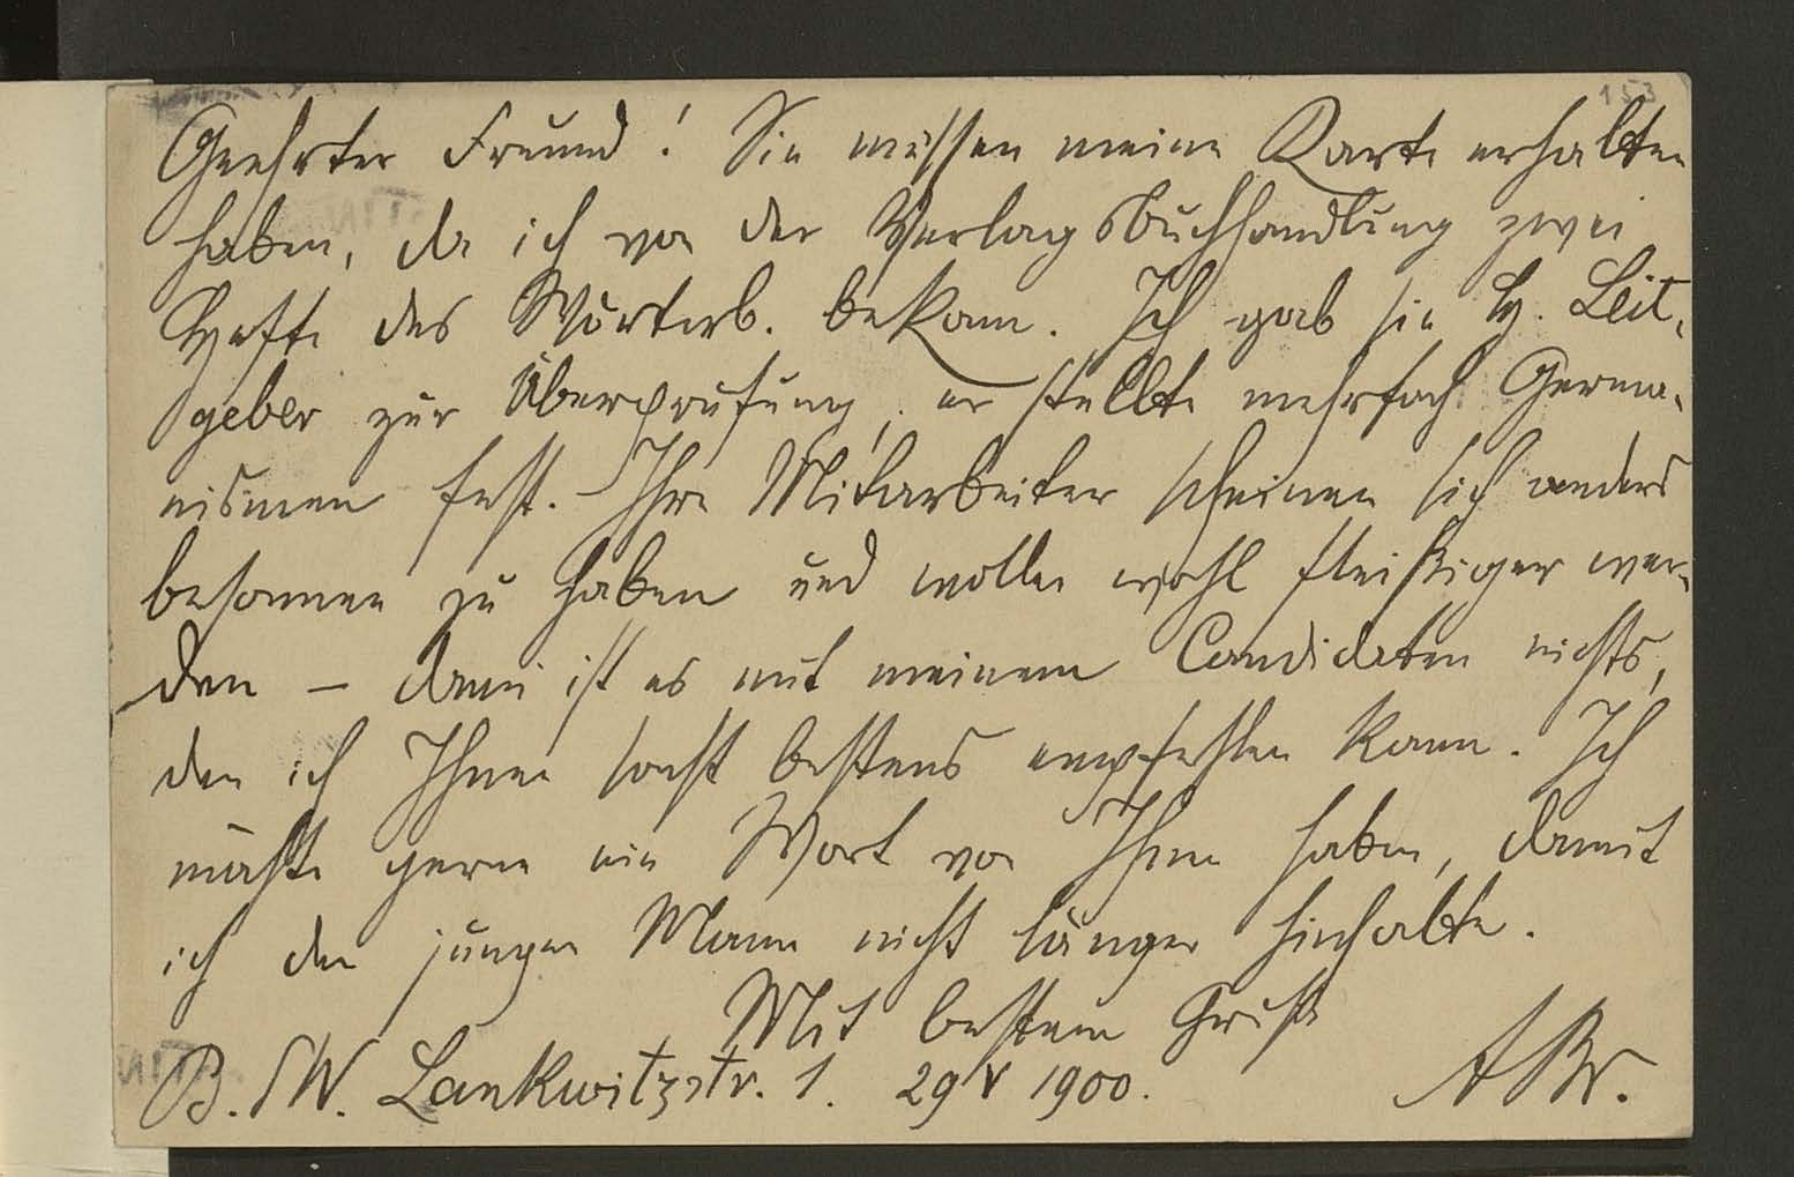 153
Geehrter Freund! Sie müssen meine Karte erhalten
haben, da ich von der Verlagsbuchhandlung zwei
Hefte des Wörterb. bekam. Ich gab sie H. Leit-
geber zur Überprüfung, er stellte mehrfach Germa-
nismen fest. – Ihre Mitarbeiter scheinen sich anders
besonnen zu haben und wollen wohl fleißiger wer-
den – dann ist es mit meinem Candidaten nichts,
den ich Ihnen sonst bestens empfehlen kann. Ich
möchte gerne ein Wort von Ihnen haben, damit
ich den jungen Mann nicht länger hinhalte.
Mit bestem Gruße
B. SW. Lankwitzstr. 1. 29 V 1900. ABr.